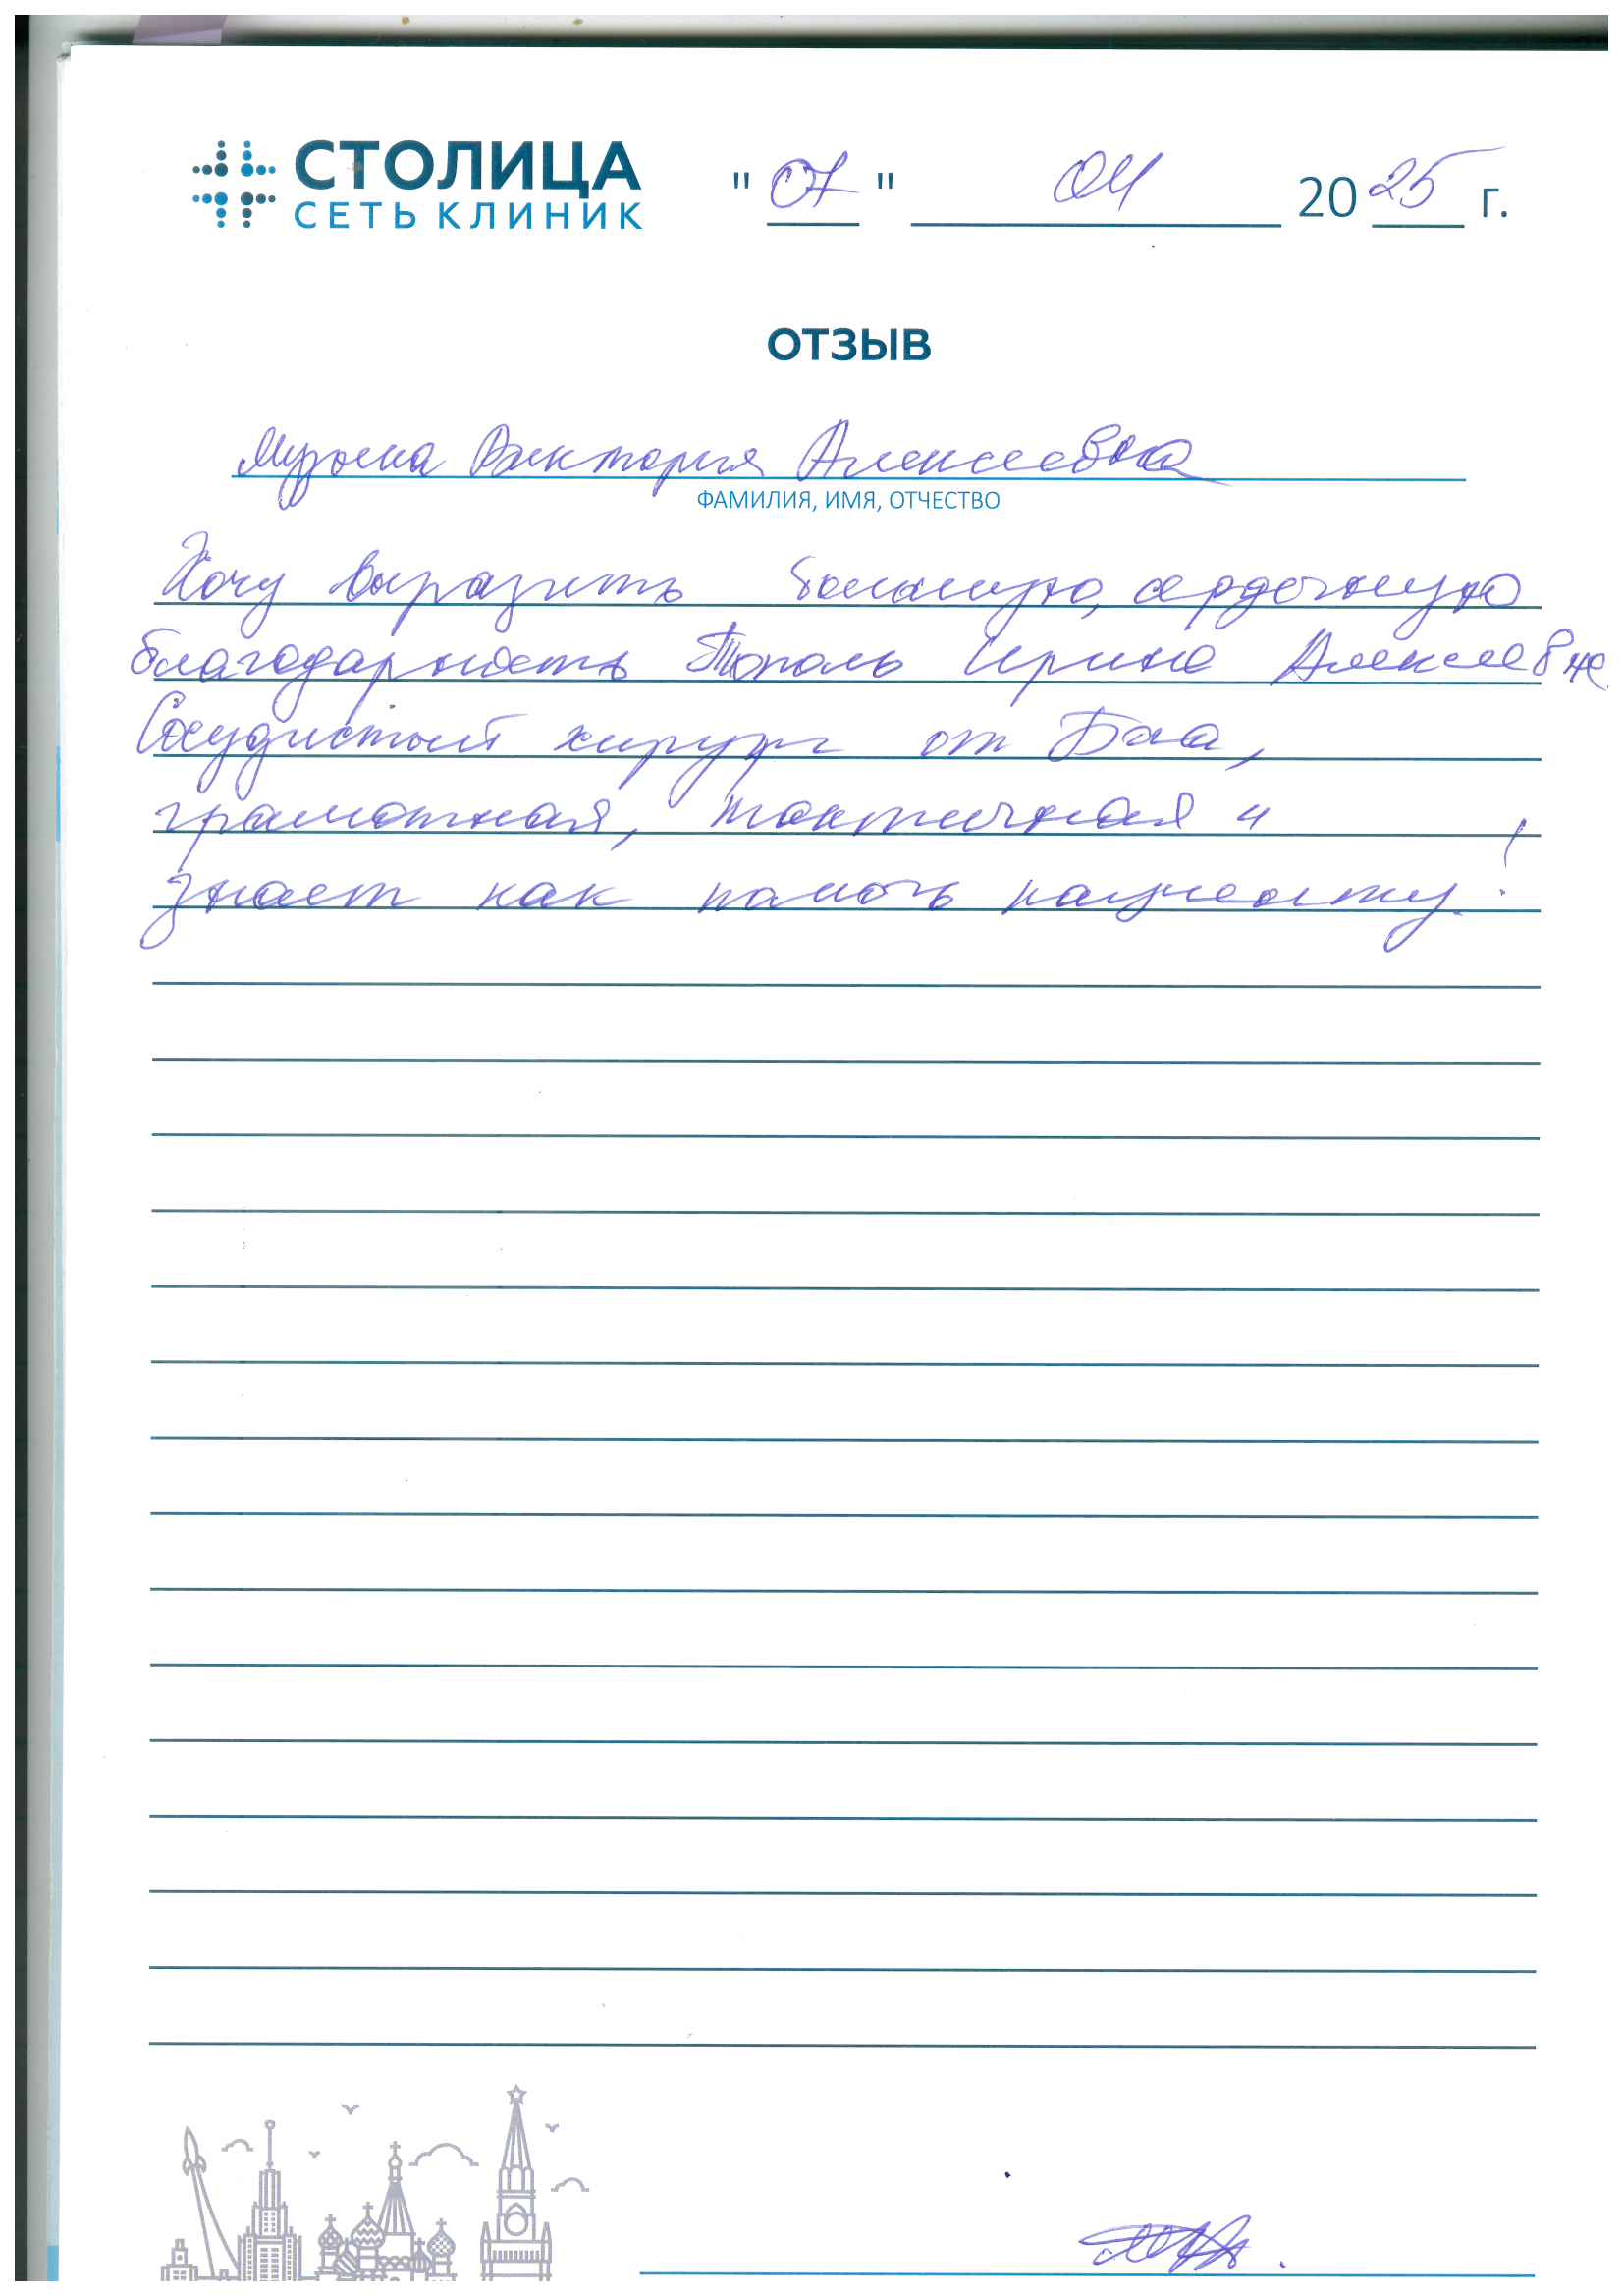 СТОЛИЦА
СЕТЬ КЛИНИК
"07" 04 2025 г.
ОТЗЫВ
Музыка Виктория Алексеевна
ФАМИЛИЯ, ИМЯ, ОТЧЕСТВО
Хочу выразить большую, сердечную
благодарность Тополь Ирине Алексеевне.
Сосудистый хирург от Бога,
грамотная, тактичная и
знает как помочь пациенту!